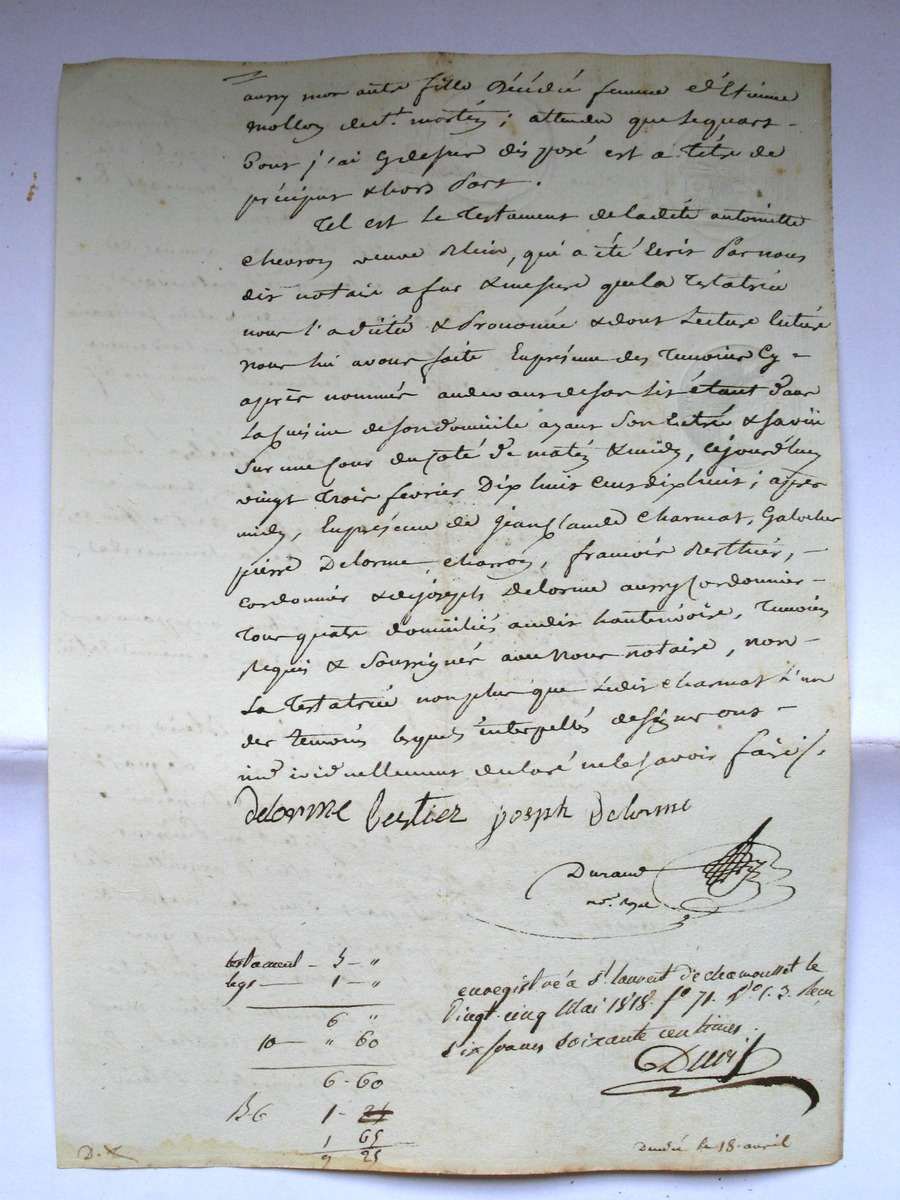 aussy mon autre fille décédée femme d'Etienne
mollon de st. martin; attendu que le quart
dont j'ai cy dessus disposé est a titre de
préciput & hors part.
Tel est le testament de ladite antoinette
veuve, qui a été écrit par nous
dit notaire a fur & mesure que la testatrice
nous l'a dicté & prononcé & dont lecture entière
nous lui avons faite en présence des témoins cy =
après nommés au devant de son lit étant dans
la cuisine de son domicile ayant son entrée &
sur une cour du coté de matin & midy, cejourd'huy
vingt trois fevrier dix huit cent dix huit; après
midy, en présence de jean claude charmat, galocher
pierre Delorme charron, francois Berthier, -
cordonnier & de joseph delorme aussy cordonnier -
tous quatre domiciliés audit hauterivoire, témoins
requis & soussignés avec nous notaire, non -
la testatrice non plus que ledit charmat l'un
des temoins lesquels interpellés de signer ont -
individuellement déclaré ne le savoir faire /.
Delorme Bertier joseph Delorme
Durand
nore. royal
testament - 5 - "
legs - 1 - "
6 "
10 - " 60
6 - 60
1 -
1 65
9 25
enregistré a St. laurent de chamousset le
vingt-cinq Mai 1818. fo 71. Vo c. 3. Recu
six francs soixante centimes.
le 18. avril